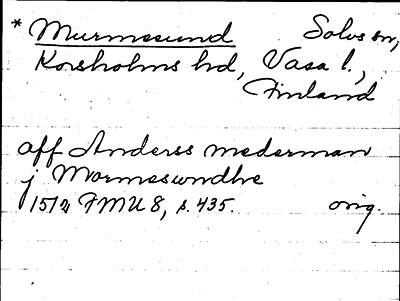 * Murmesund Solvs sn,
Korsholms hd, Vasa l.,
Finland
aff Anderss mederman
j Mormeswndhe
1512 FMU 8, s. 435. orig.